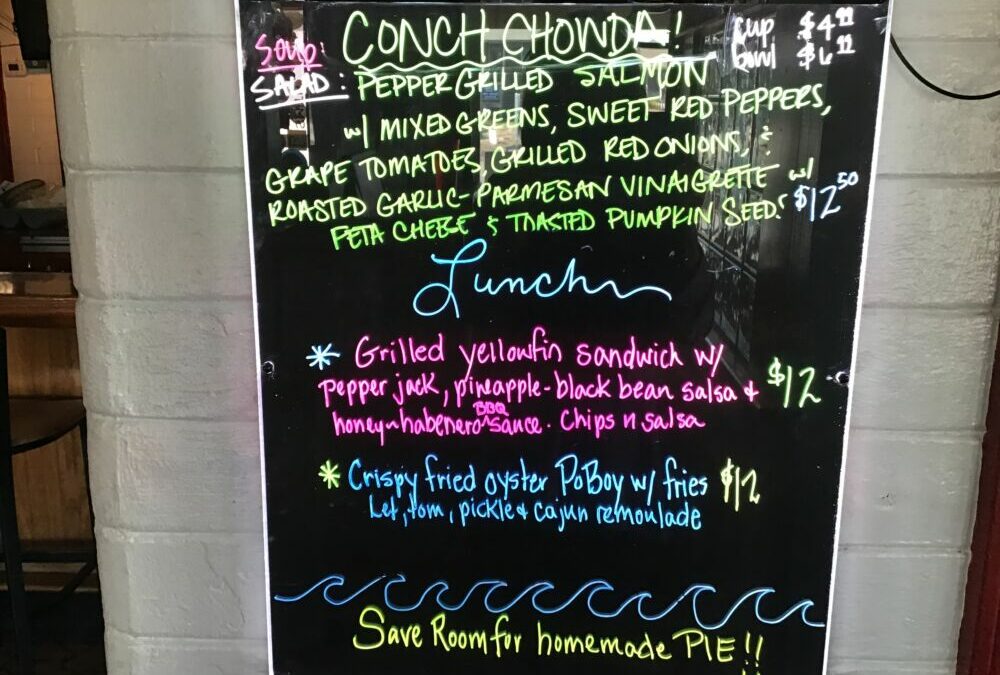 Soup: CONCH CHOWDA! cup $4.99
bowl $6.99
SALAD: PEPPER GRILLED SALMON
w/ MIXED GREENS, SWEET RED PEPPERS,
GRAPE TOMATOES, GRILLED RED ONIONS, &
ROASTED GARLIC-PARMESAN VINAIGRETTE w/
FETA CHEESE & TOASTED PUMPKIN SEEDS $12.50
Lunch
* Grilled yellowfin sandwich w/
pepper jack, pineapple-black bean salsa & $12
honey-habenero BBQ sauce. Chips n salsa
* Crispy fried oyster PoBoy w/ fries $12
Let, tom, pickle & cajun remoulade
Save Room for homemade PIE!!